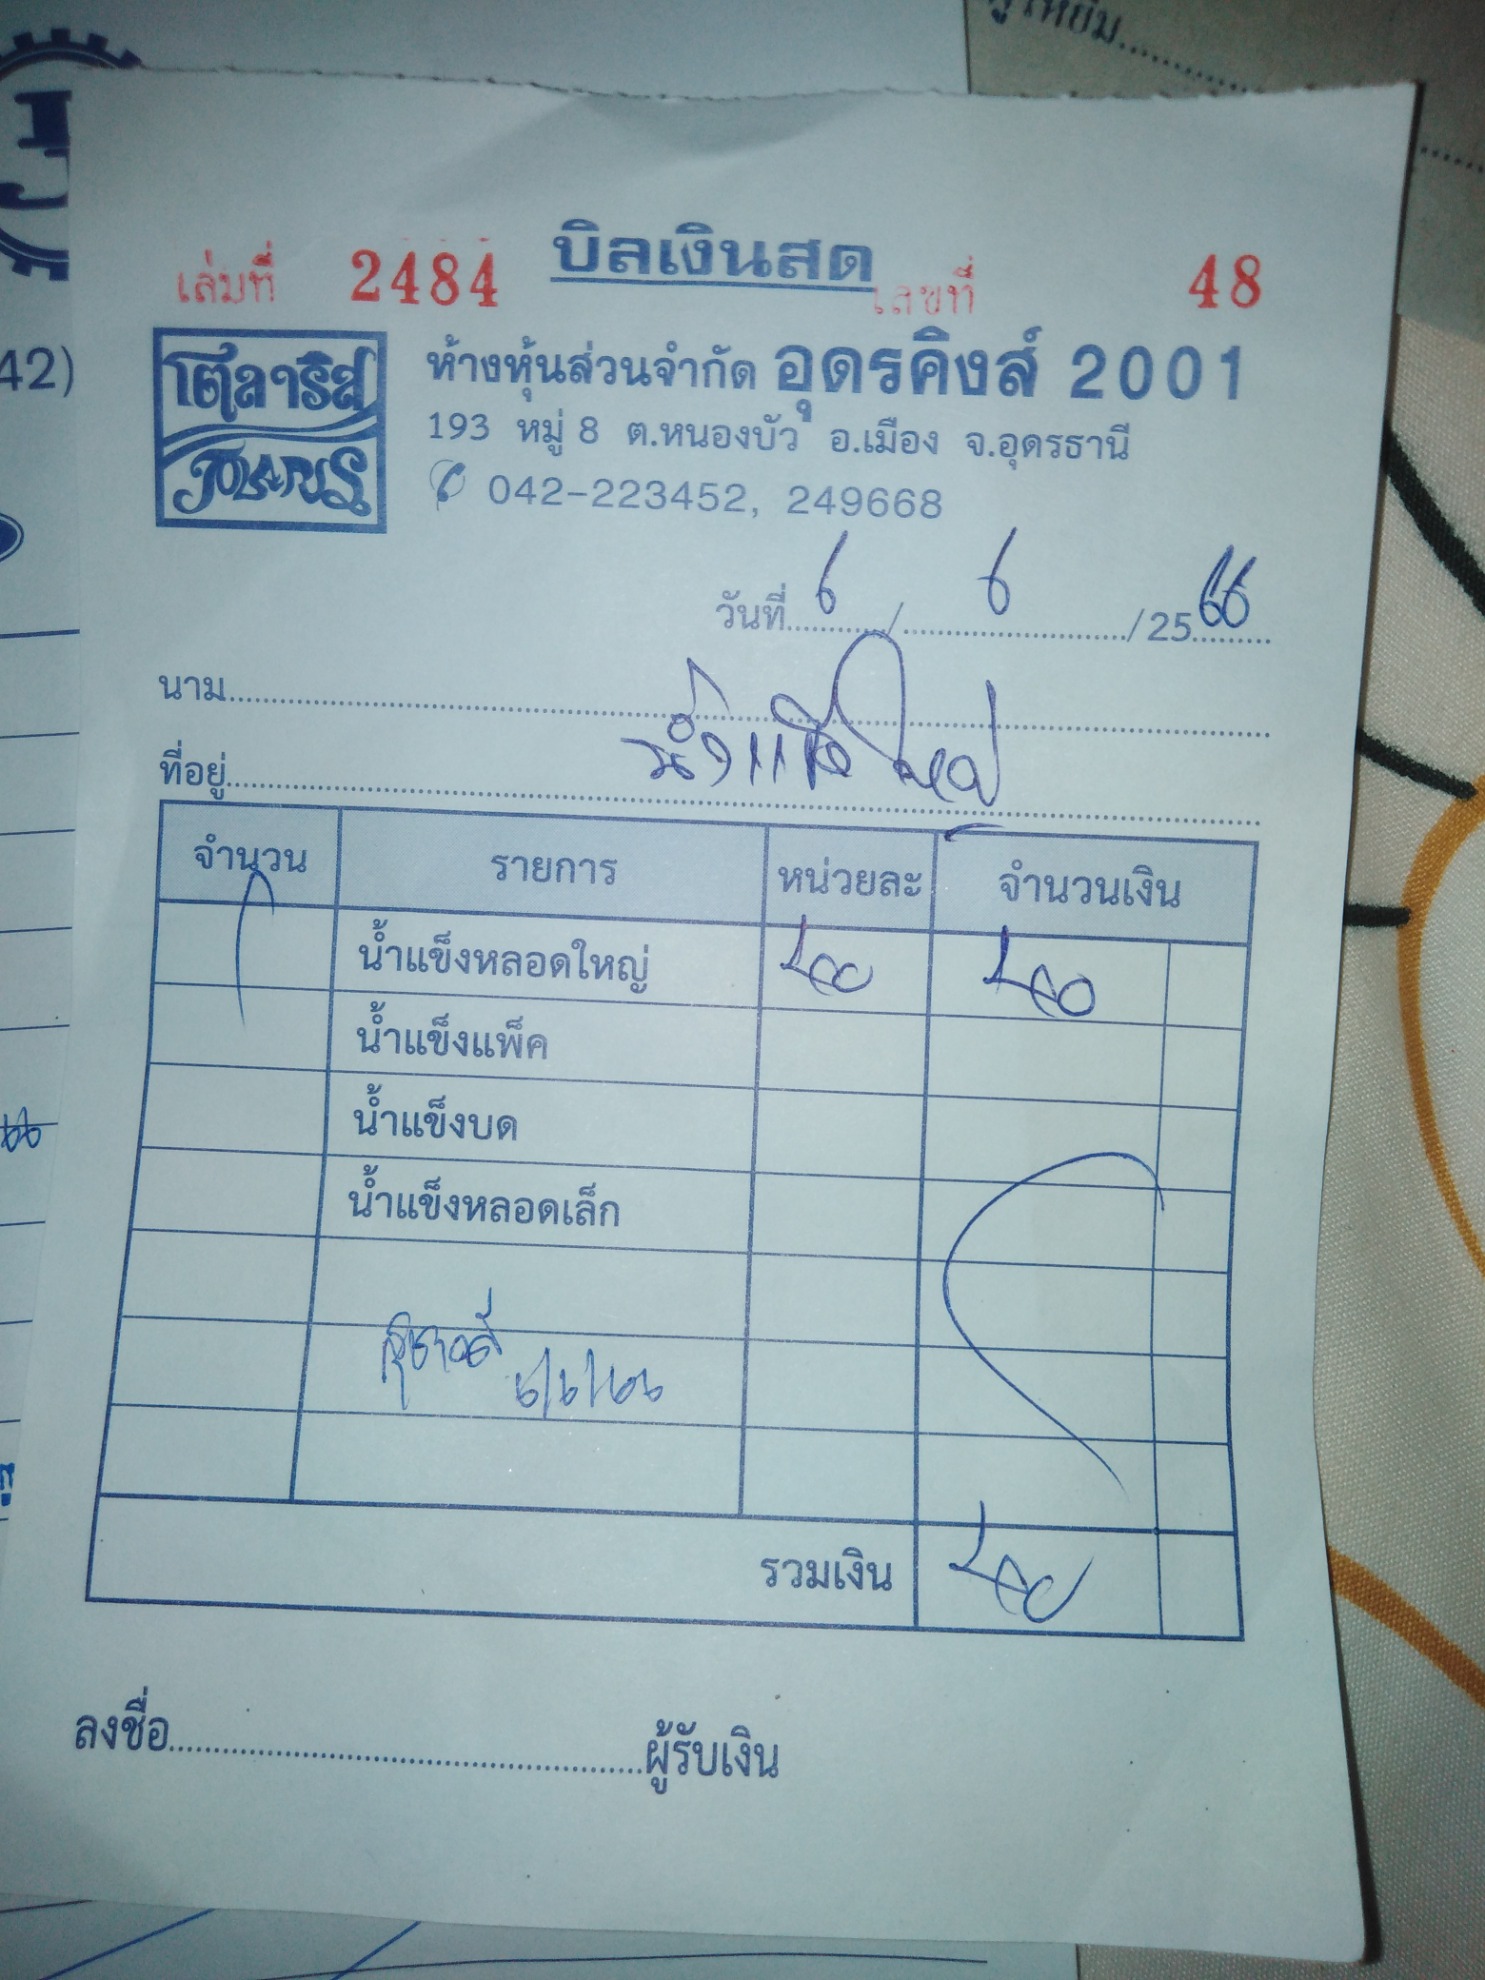 เล่มที่ 2484 บิลเงินสด เลขที่ 48
โตลาริส
TOLARIS
ห้างหุ้นส่วนจำกัด อุดรคิงส์ 2001
193 หมู่ 8 ต.หนองบัว อ.เมือง จ.อุดรธานี
042-223452, 249668
วันที่ 6 / 6 / 25 66
นาม
ที่อยู่ น้ำแข็งใหญ่
จำนวน รายการ หน่วยละ จำนวนเงิน
1 น้ำแข็งหลอดใหญ่
น้ำแข็งแพ็ค
น้ำแข็งบด
น้ำแข็งหลอดเล็ก
6/6/66
รวมเงิน
ลงชื่อ ผู้รับเงิน
42)